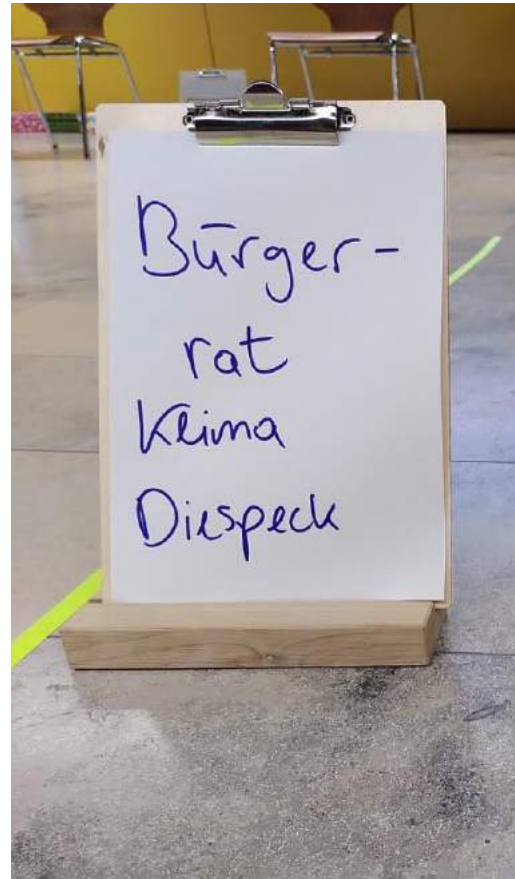 Bürger-
rat
Klima
Diespeck